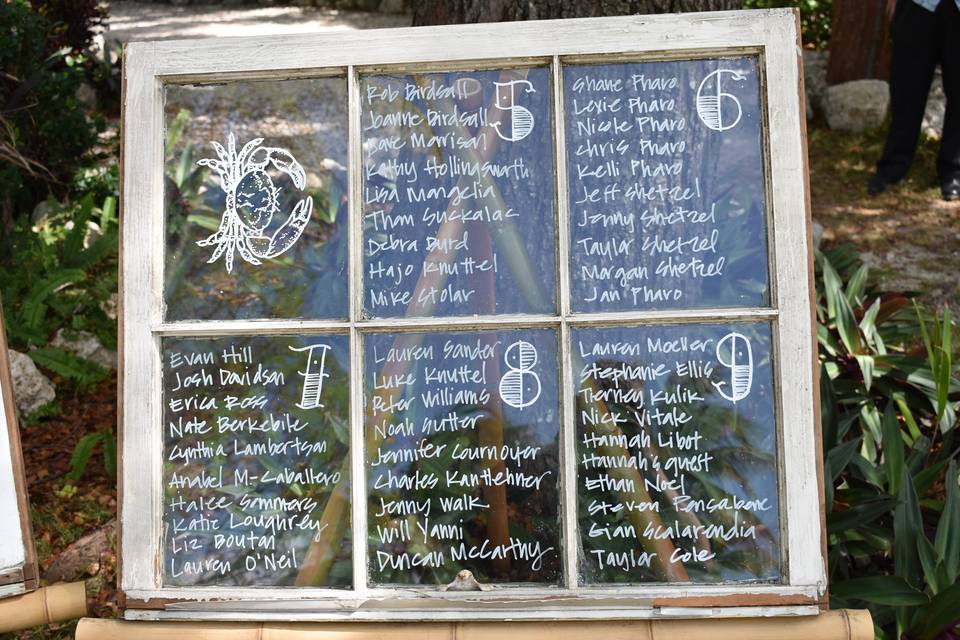 5
Rob Birdsall
Joanne Birdsall
Dave Morrison
Kathy Hollingsworth
Lisa Mangelia
Thom Suckalac
Debra Byrd
Hajo Knuttel
Mike Stolar
6
Shane Pharo
Levie Pharo
Nicole Pharo
Chris Pharo
Kelli Pharo
Jeff Shetzel
Jenny Shetzel
Taylor Shetzel
Morgan Shetzel
Jan Pharo
7
Evan Hill
Josh Davidson
Erica Ross
Nate Berkebile
Cynthia Lambertson
Anabel M-Caballero
Halee Sommers
Katie Loughrey
Liz Boutan
Lauren O'Neil
8
Lauren Sander
Luke Knuttel
Peter Williams
Noah Sutter
Jennifer Cournoyer
Charles Kantlehner
Jenny Walk
Will Yanni
Duncan McCarthy
9
Lauren Moeller
Stephanie Ellis
Tierney Kulik
Nick Vitale
Hannah Libot
Hannah's guest
Ethan Noel
Steven Pensabene
Gian Scalarandia
Taylor Cole